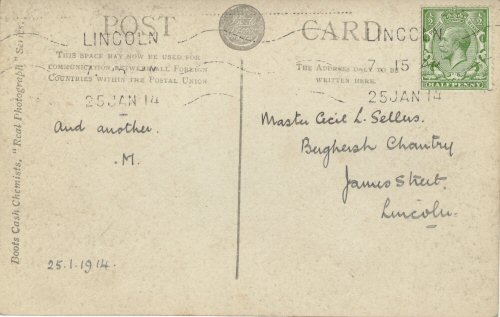 POST CARD
LINCOLN
LINCOLN
7 15
25 JAN 14
25 JAN 14
THIS SPACE MAY NOW BE USED FOR
COMMUNICATION BETWEEN ALL FOREIGN
COUNTRIES WITHIN THE POSTAL UNION
THE ADDRESS ONLY TO BE
WRITTEN HERE.
HALFPENNY
Boots Cash Chemists, "Real Photograph" Series.
And another.
.M.
25.1.1914.
Master Cecil L. Sellers.
Burghersh Chantry
James Street.
Lincoln.